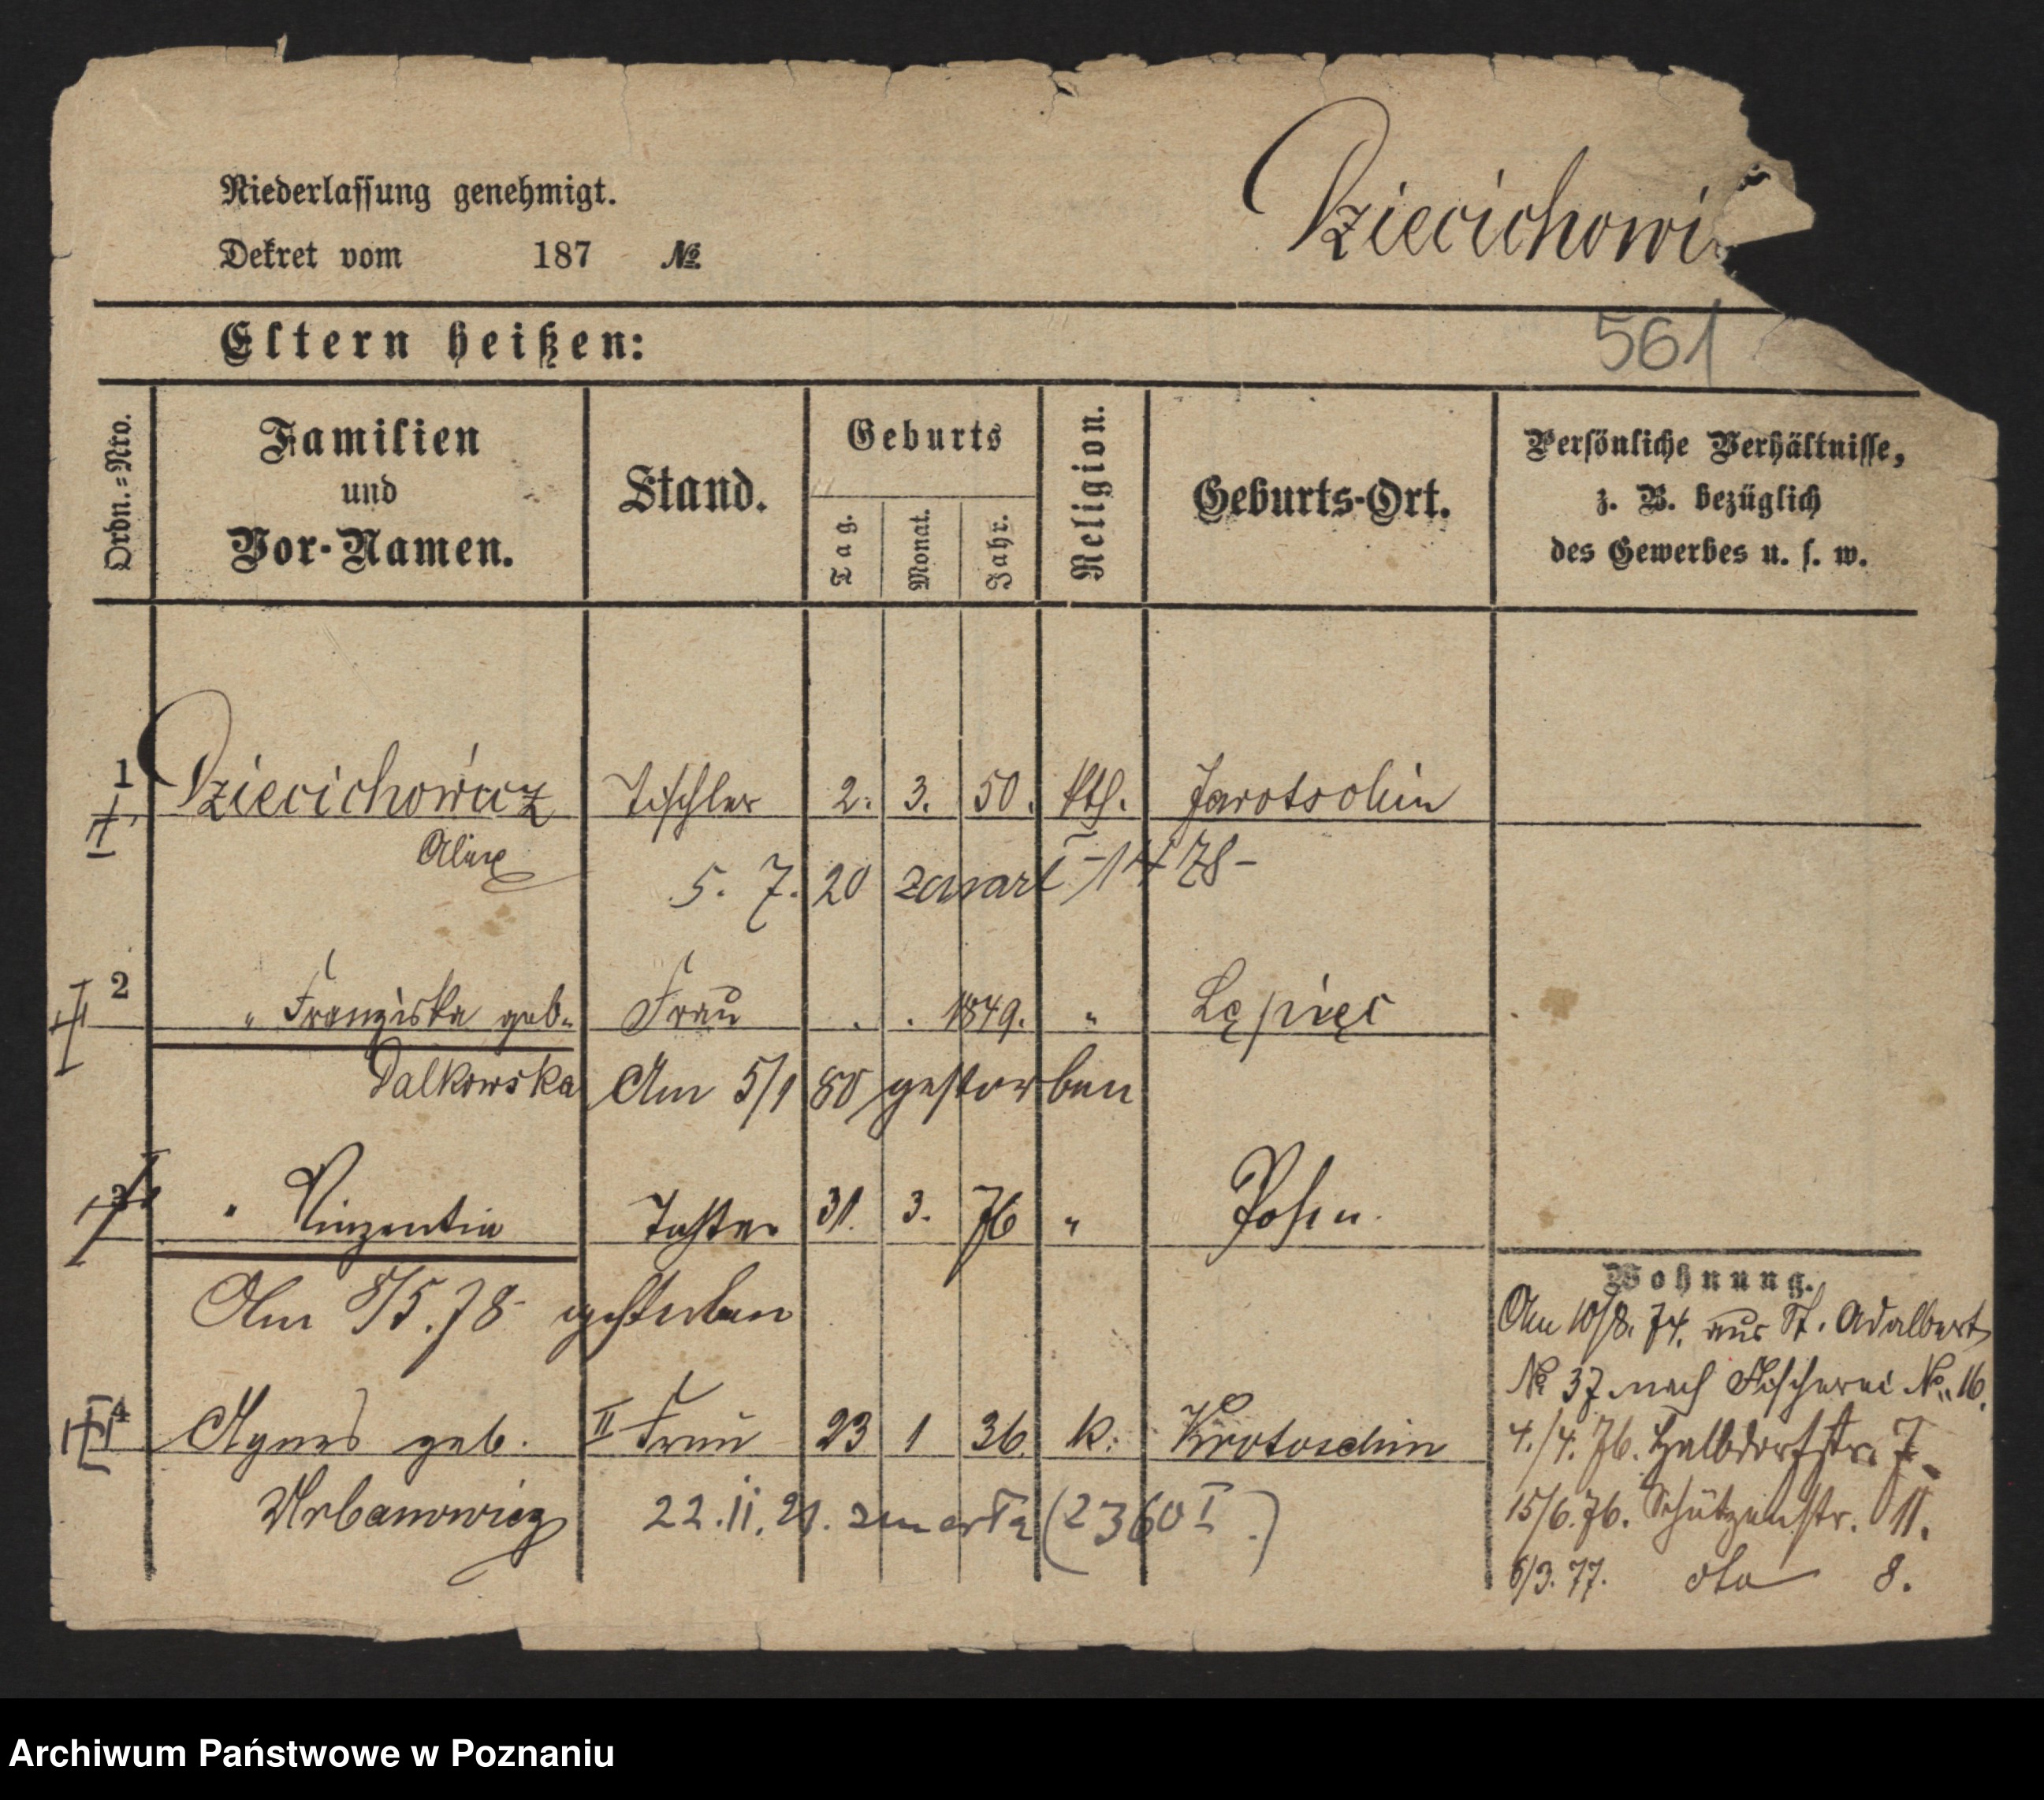 Niederlassung genehmigt.
Dekret vom 187 №
Dziecichowi
Eltern heißen:
561
Ordn.=Nro.
Familien
und
Vor-Namen.
Stand.
Geburts
Tag.
Monat.
Jahr.
Religion.
Geburts-Ort.
Persönliche Verhältnisse,
z. B. bezüglich
des Gewerbes u. s. w.
1 Dziecichowicz Tischler 2. 3. 50. kth. Jarotschin
5. 7. 20 zmarł
2 " Franziska geb. Frau . . 1849. "
Dalkowska Am 5/1 80 gestorben
3 " Vinzentia Tochter 31. 3. 76 " Posen.
Am 8/5.78 gestorben
4 Agnes geb. II Frau 23 1 36. k. Krotoschin
Urbanowicz 22.11.21. zmarła (2360 I.)
Wohnung.
Am 10/8. 74. aus St. Adalbert
№ 37 nach Fischerei No. 16.
4./4. 76. Halbdorfstr. 7.
15/6.76. Schützenstr. 11.
6/3.77. dto 8.
Archiwum Państwowe w Poznaniu